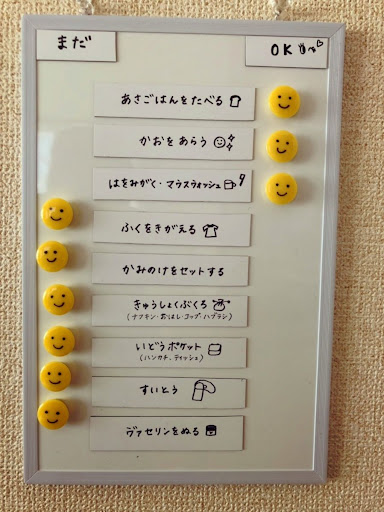 まだ
OK
あさごはんをたべる
かおをあらう
はをみがく・マウスウォッシュ
ふくをきがえる
かみのけをセットする
きゅうしょくぶくろ
(ナフキン・おはし・コップ・ハブラシ)
いどうポケット
(ハンカチ、ティッシュ)
すいとう
ヴァセリンをぬる